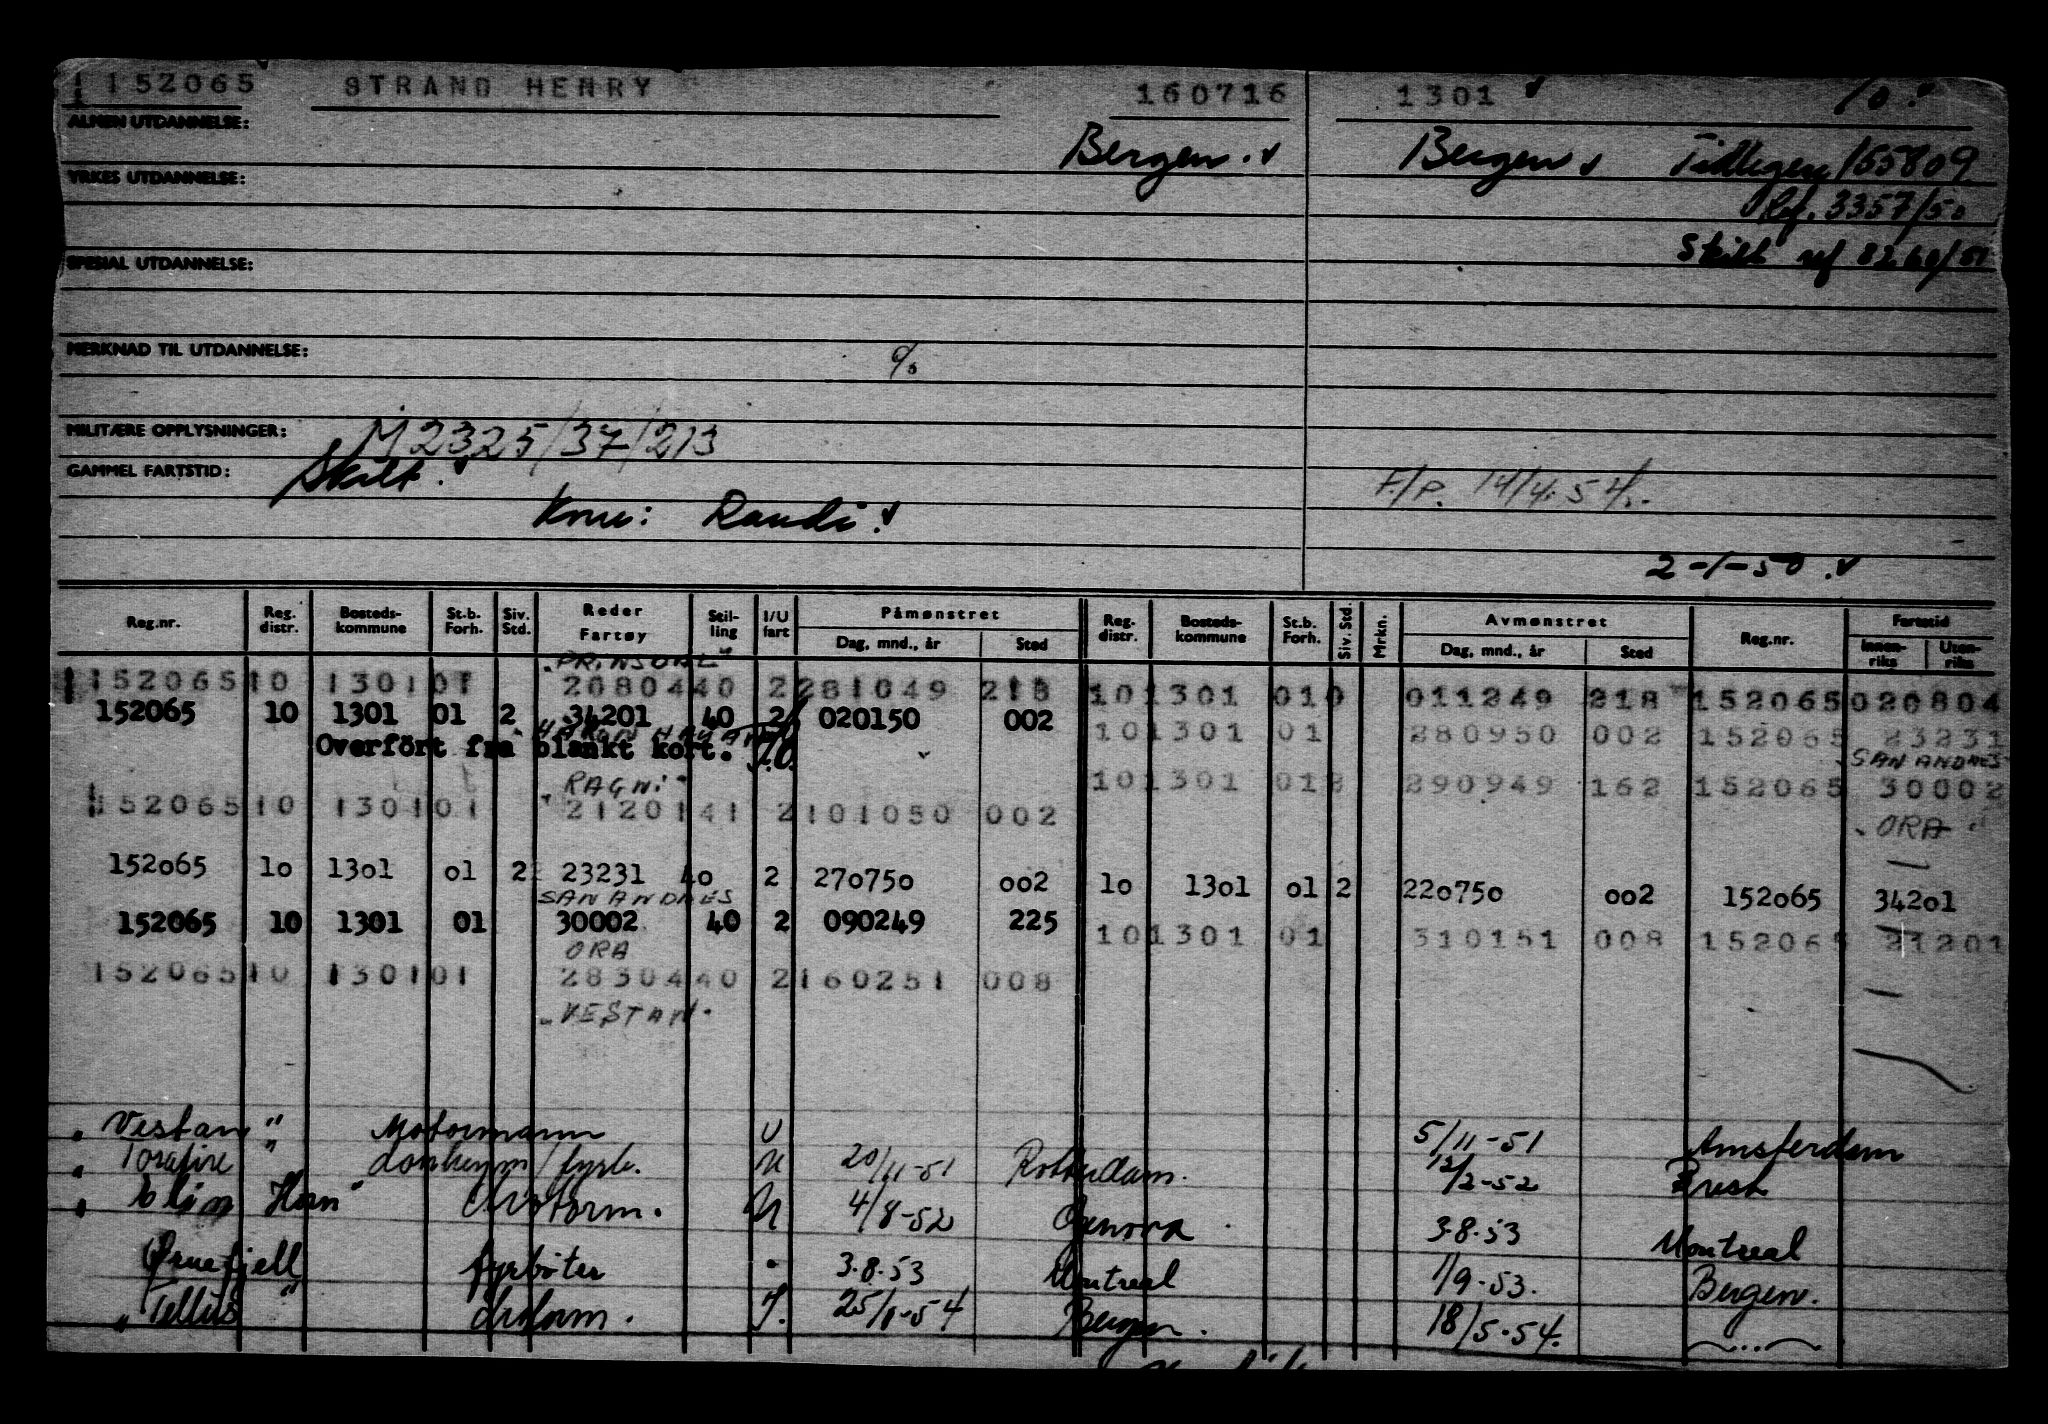 152065 STRAND HENRY 160716 1301 10.
ALMEN UTDANNELSE:
Bergen. Bergen 155809
YRKES UTDANNELSE:
Ref. 3357/50
SPESIAL UTDANNELSE: Skilt ref 8260/51
MERKNAD TIL UTDANNELSE: %
MILITÆRE OPPLYSNINGER: M2325/37/213
GAMMEL FARTSTID: Skilt. F/P. 14/4.54.
Kone: Randi.
2-1-50.
Reg.nr. Reg. distr. Bosteds-kommune St.b. Forh. Siv. Std. Reder Fartøy Stil-ling I/U fart Påmønstret Dag, mnd., år Sted Reg. distr. Bosteds-kommune St.b. Forh. Siv. Std. Mrkn. Avmønstret Dag, mnd., år Sted Reg.nr. Fartstid Innen-riks Uten-riks
"PRINSDAL"
152065 10 1301 01 20804 40 2 281049 218 10 1301 01 0 011249 218 152065 020804
152065 10 1301 01 2 34201 40 2 020150 002
10 1301 01 280950 002 152065 23231
Overfört fra blankt kort. SAN ANDRES
"RAGNI" 10 1301 01 290949 162 152065 30002
152065 10 1301 01 21201 41 2 101050 002
"ORA"
152o65 1o 13o1 o1 2 23231 4o 2 27o75o oo2 1o 13o1 o1 2 22o75o oo2 152o65 342o1
SAN ANDRES
152065 10 1301 01 30002 40 2 090249 225
10 1301 01 310151 008 152065 21201
ORA
152065 10 1301 01 28304 40 2 160251 008
"VESTAN"
"Vestan" Motormann U 5/11-51 Amsterdam
"Torafire" U 20/11-51 Rotterdam. 12/2-52 Brest
"Elin Horn" Motorm. U 4/8-52 Genova 3.8.53 Montreal
Ørnefjell fyrbøter " 3.8.53 Montreal 1/9-53. Bergen.
"Tellus" Motorm. I. 25/1-54 Bergen. 18/5-54.